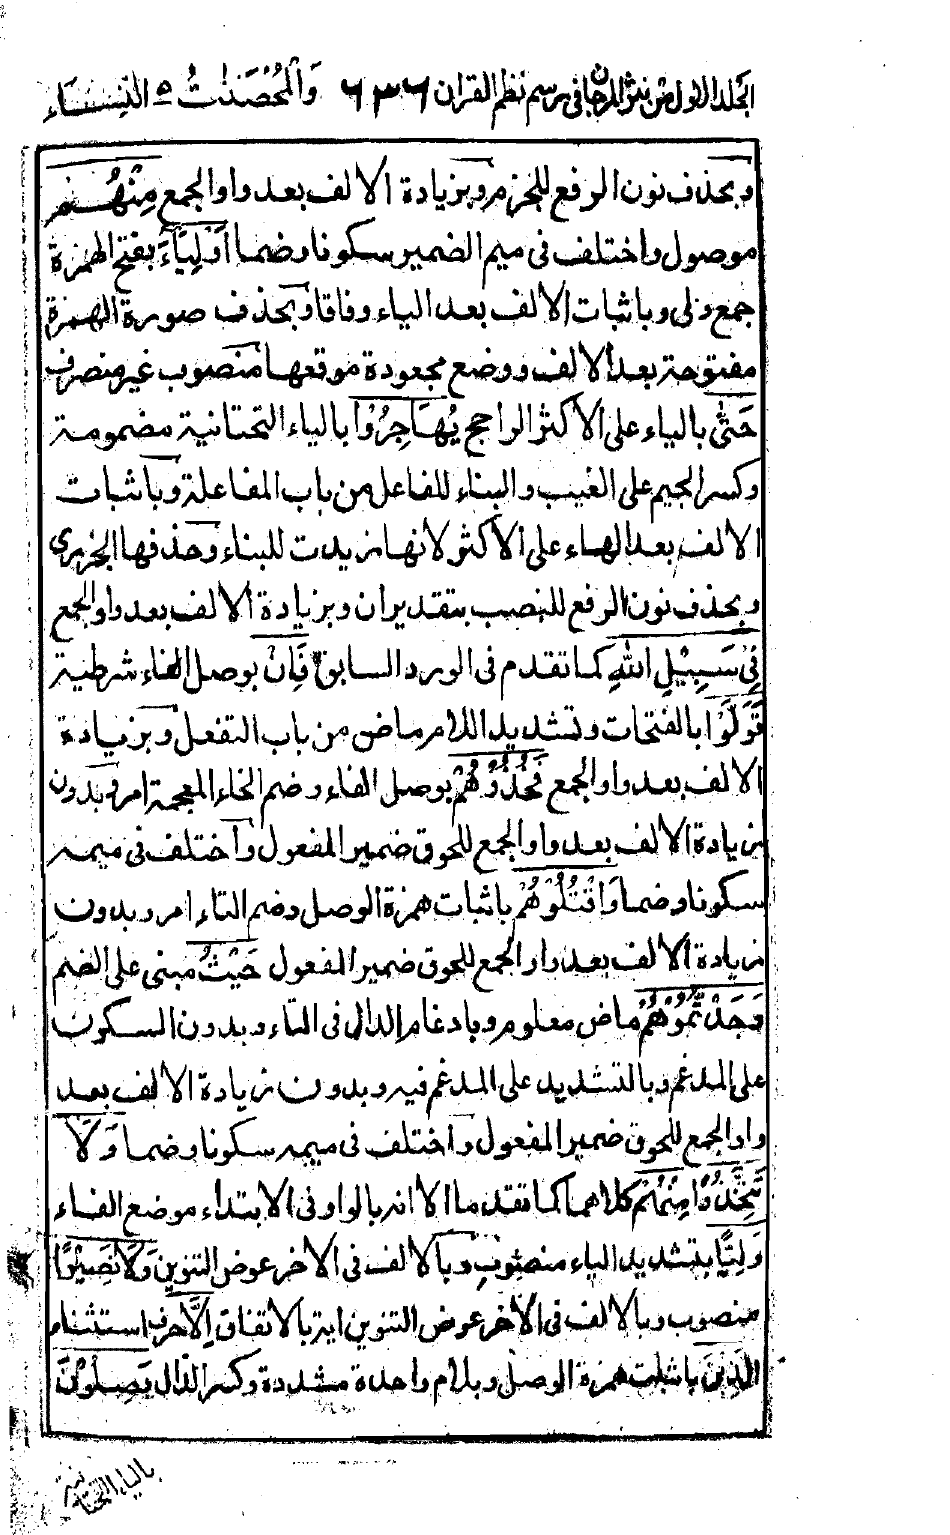 المجلد الاول من نثر المرجان في رسم نظم القران ٦٣٦ وَالْمُحْصَنٰتُ ٥ النِّسَاء
وبحذف نون الرفع للجزم وبزيادة الالف بعد واو الجمع مِنْهُمْ
موصول واختلف فى ميم الضمير سكونا وضما اَوْلِيَآءَ بفتح الهمزة
جمع ولى وباثبات الالف بعد الياء وفاقا وبحذف صورة الهمزة
مفتوحة بعد الالف ووضع مجعودة موقعها منصوب غير منصرف
حَتّٰى بالياء على الاكثر الراجح يُهَاجِرُوْا بالياء التحتانية مضمومة
وكسر الجيم على الغيب والبناء للفاعل من باب المفاعلة وباثبات
الالف بعد الهاء على الاكثر لانها زيدت للبناء وحذفها الجزرى
وبحذف نون الرفع للنصب بتقدير ان وبزيادة الالف بعد واو الجمع
فِيْ سَبِيْلِ اللّٰهِ كما تقدم فى الورد السابق فَاِنْ بوصل الفاء شرطية
تَوَلَّوْا بالفتحات وتشديد اللام ماض من باب التفعل وبزيادة
الالف بعد واو الجمع فَخُذُوْهُمْ بوصل الفاء وضم الخاء المعجمة امر وبدون
زيادة الالف بعد واو الجمع للحوق ضمير المفعول واختلف فى ميمه
سكونا وضما وَاقْتُلُوْهُمْ باثبات همزة الوصل وضم التاء امر وبدون
زيادة الالف بعد واو الجمع للحوق ضمير المفعول حَيْثُ مبنى على الضم
وَجَدْتُّمُوْهُمْ ماض معلوم وبادغام الدال فى التاء وبدون السكون
على المدغم وبالتشديد على المدغم فيه وبدون زيادة الالف بعد
واو الجمع للحوق ضمير المفعول واختلف فى ميمه سكونا وضما وَلَا
تَتَّخِذُوْا مِنْهُمْ كلاهما كما تقدما الا انه بالواو فى الابتداء موضع الفاء
وَلِيًّا بتشديد الياء منصوب وبالالف فى الاخر عوض التنوين وَلَا نَصِيْرًا
منصوب وبالالف فى الاخر عوض التنوين اية بالاتفاق اِلَّا حرف استثناء
الَّذِيْنَ باثبات همزة الوصل وبلام واحدة مشددة وكسر الذال يَصِلُوْنَ
بالياء التحتانية